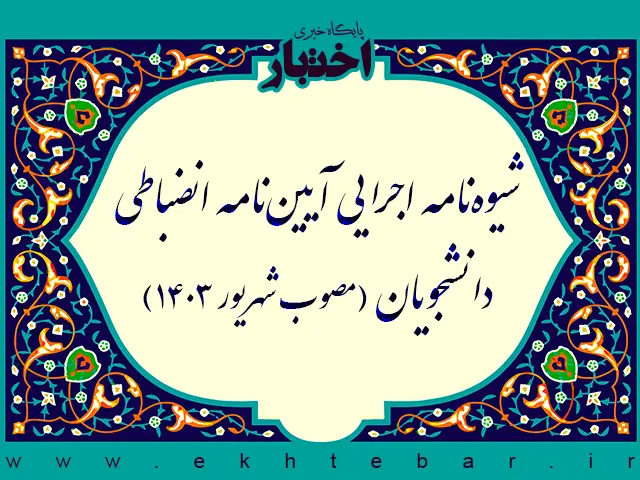 پایگاه خبری
اختبار
شیوه‌نامه اجرایی آیین‌نامه انضباطی
دانشجویان (مصوب شهریور ۱۴۰۳)
www.ekhtebar.ir